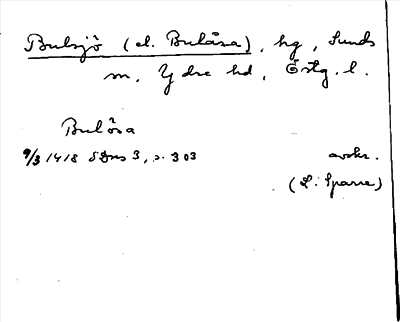 Bulsjö (el. Bulåsa), hg, Sunds
sn, Ydre hd, Östg. l.
Bulösa
9/3 1418 SDns 3, s. 303 avskr.
(L. Sparre)